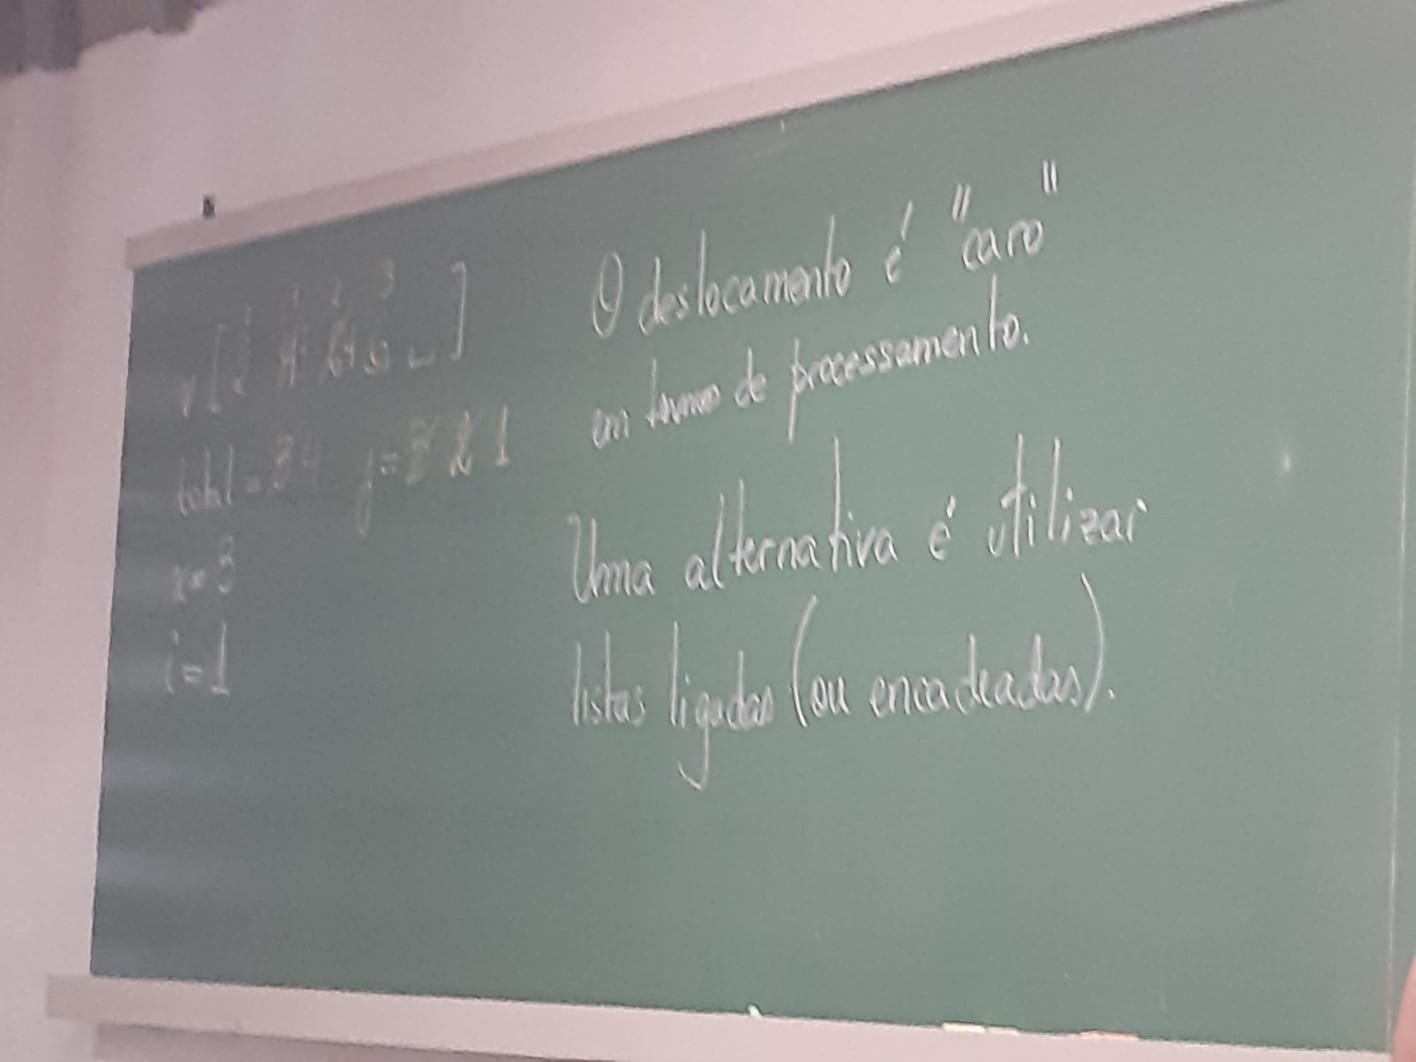 total = 3 4 j = 3 2 1
x = 3
i = 1
O deslocamento é "caro"
em termo de processamento.
Uma alternativa é utilizar
listas ligadas (ou encadeadas).